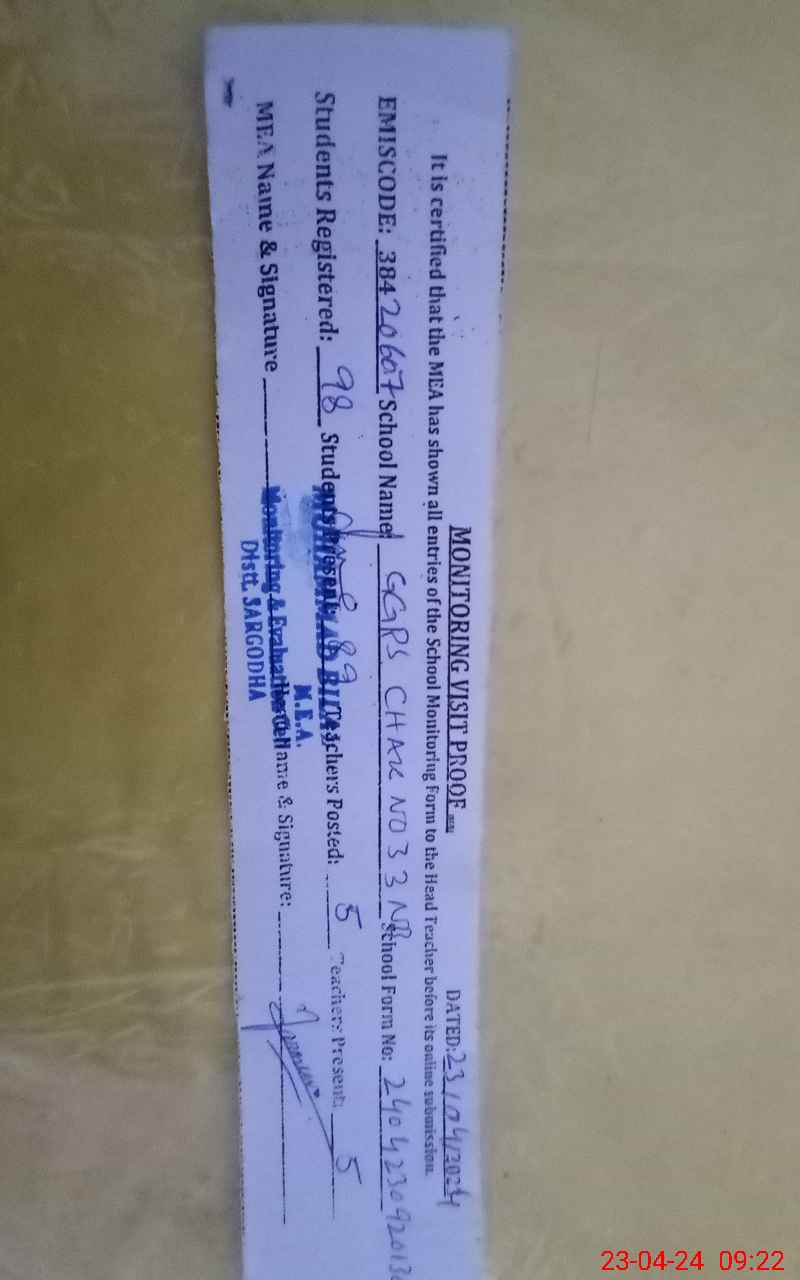 MONITORING VISIT PROOF DATED: 23/04/2024
It is certified that the MEA has shown all entries of the School Monitoring Form to the Head Teacher before its online submission.
EMISCODE: 38420607 School Name GGPS CHAK NO 33 NB School Form No: 240423092013
Students Registered: 98 Students Present: 89 Teachers Posted: 5 Teachers Present: 5
MUHAMMAD BILAL
M.E.A.
MEA Name & Signature Name & Signature:
Monitoring & Evaluation Cell
Distt. SARGODHA
23-04-24 09:22